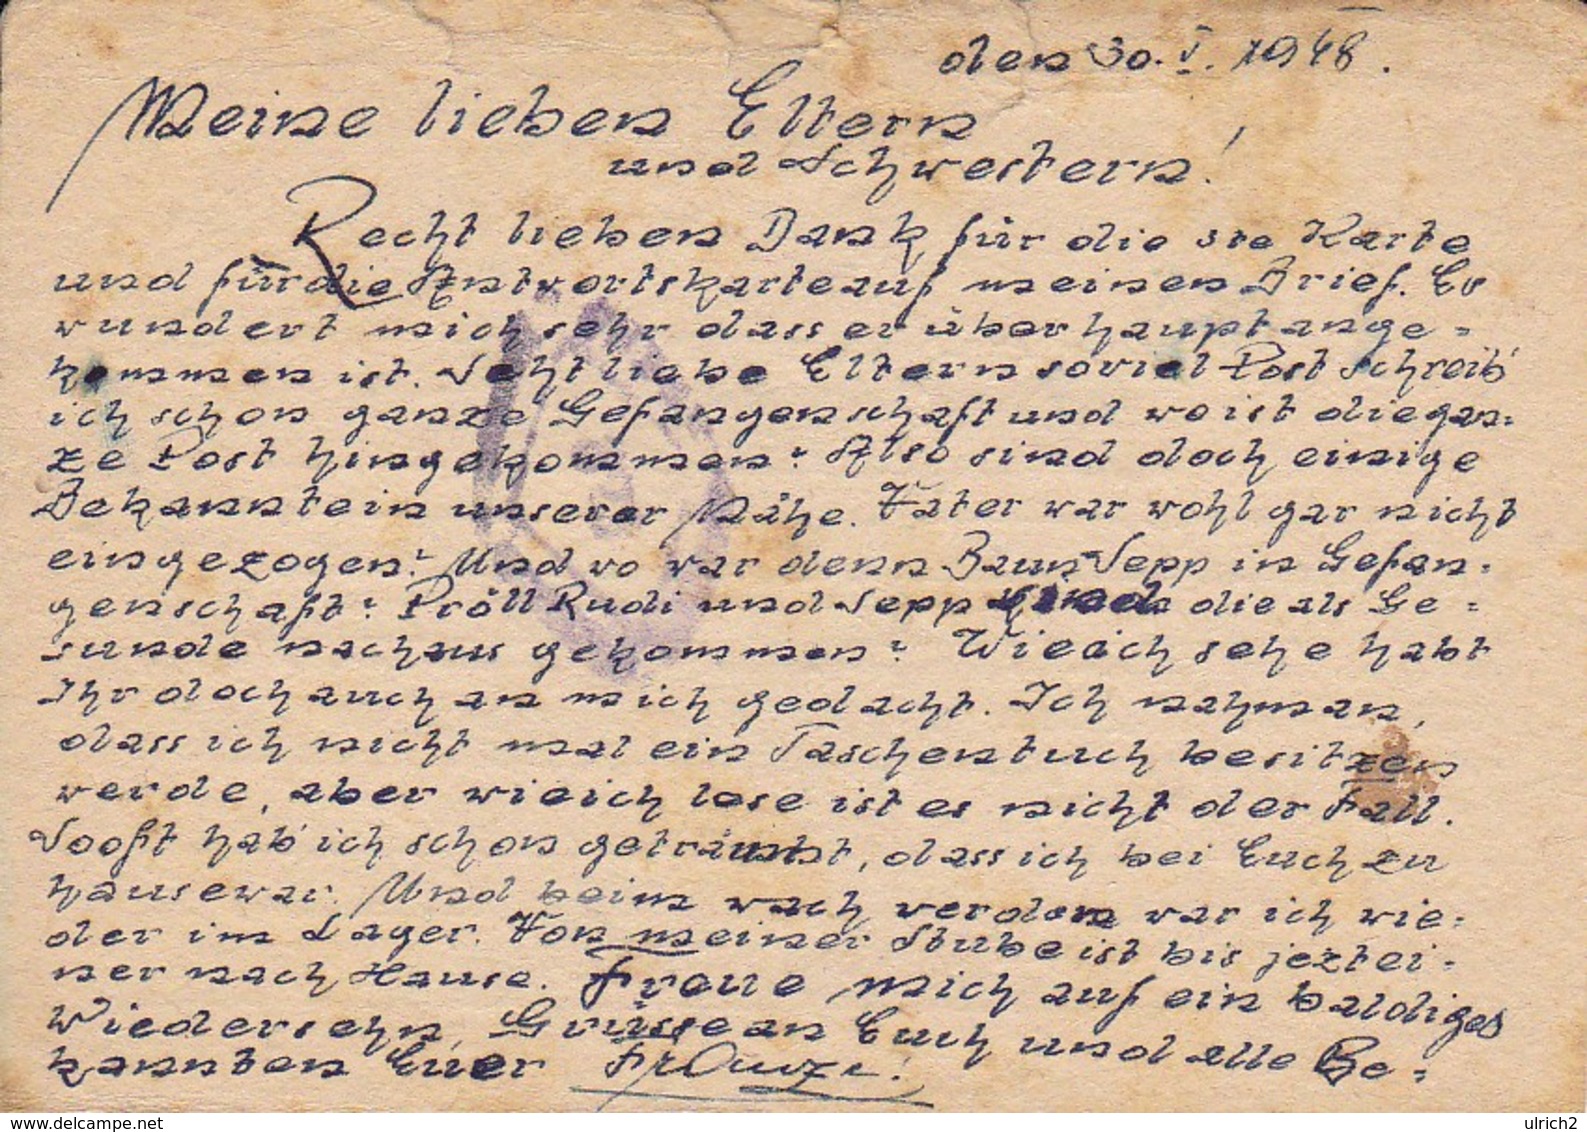 den 30. V. 1948.
Meine lieben Eltern
und Schwestern!
Recht lieben Dank für die 3te Karte
und für die Antwortskarte auf meinen Brief. Es
wundert mich sehr dass er überhaupt ange=
kommen ist. Seht liebe Eltern soviel Post schreib'
ich schon ganze Gefangenschaft und wo ist die gan=
ze Post hingekommen? Also sind doch einige
Bekannte in unserer Nähe. Vater war wohl gar nicht
eingezogen? Und wo war denn Baun Sepp in Gefan=
genschaft? Pröll Rudi und Sepp sind die als Ge=
sunde nachaus gekommen? Wie ich sehe habt
Ihr doch auch an mich gedacht. Ich nahm an,
dass ich nicht mal ein Taschentuch besitzen
werde, aber wie ich lese ist es nicht der Fall.
So oft hab' ich schon geträumt, dass ich bei Euch zu
hause war. Und beim wach werden war ich wie=
der im Lager. Von meiner Stube ist bis jezt ei=
ner nach Hause. Freue mich auf ein baldiges
Wiedersehn, Grüsse an Euch und alle Be=
kannten Euer Franze!
www.delcampe.net
ulrich2